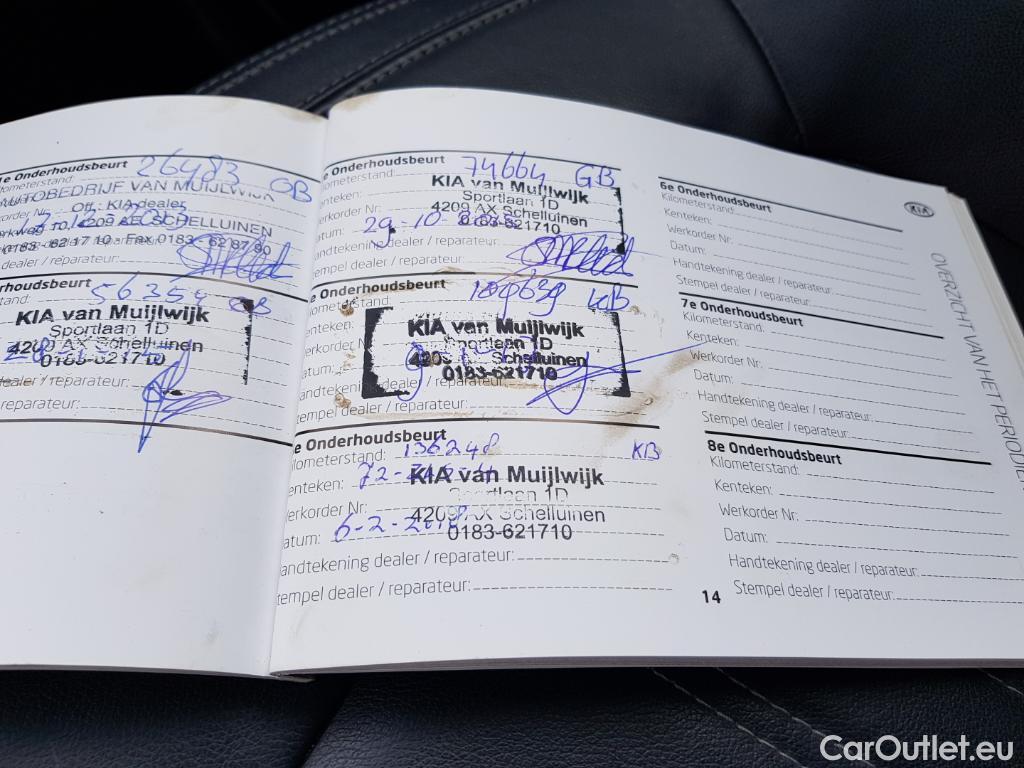 1e Onderhoudsbeurt 26483 GB
Kilometerstand:
AUTOBEDRIJF VAN MUIJLWIJK
Off. KIA dealer
4209 AE SCHELLUINEN
0183 - 62 17 10 - Fax 0183 - 62 87 90
dealer / reparateur:
Onderhoudsbeurt 56354 GB
stand:
KIA van Muijlwijk
Sportlaan 1D
4209 AX Schelluinen
0183-621710
dealer / reparateur:
reparateur:
e Onderhoudsbeurt 74664 GB
Kilometerstand:
KIA van Muijlwijk
Kenteken:
Sportlaan 1D
Werkorder Nr:
4209 AX Schelluinen
Datum: 29-10-
0183-621710
Handtekening dealer / reparateur:
Stempel dealer / reparateur:
e Onderhoudsbeurt 109639 KB
Kilometerstand:
KIA van Muijlwijk
Kenteken:
Sportlaan 1D
Werkorder Nr:
4209 AX Schelluinen
Datum:
0183-621710
Handtekening dealer / reparateur:
Stempel dealer / reparateur:
e Onderhoudsbeurt
Kilometerstand: 136248 KB
Kenteken: 72-
KIA van Muijlwijk
Sportlaan 1D
Werkorder Nr:
4209 AX Schelluinen
Datum: 6-2-2018
0183-621710
Handtekening dealer / reparateur:
Stempel dealer / reparateur:
6e Onderhoudsbeurt
Kilometerstand:
Kenteken:
Werkorder Nr:
Datum:
Handtekening dealer / reparateur:
Stempel dealer / reparateur:
7e Onderhoudsbeurt
Kilometerstand:
Kenteken:
Werkorder Nr:
Datum:
Handtekening dealer / reparateur:
Stempel dealer / reparateur:
8e Onderhoudsbeurt
Kilometerstand:
Kenteken:
Werkorder Nr:
Datum:
Handtekening dealer / reparateur:
Stempel dealer / reparateur:
14
KIA
OVERZICHT VAN HET PERIODIE
CarOutlet.eu